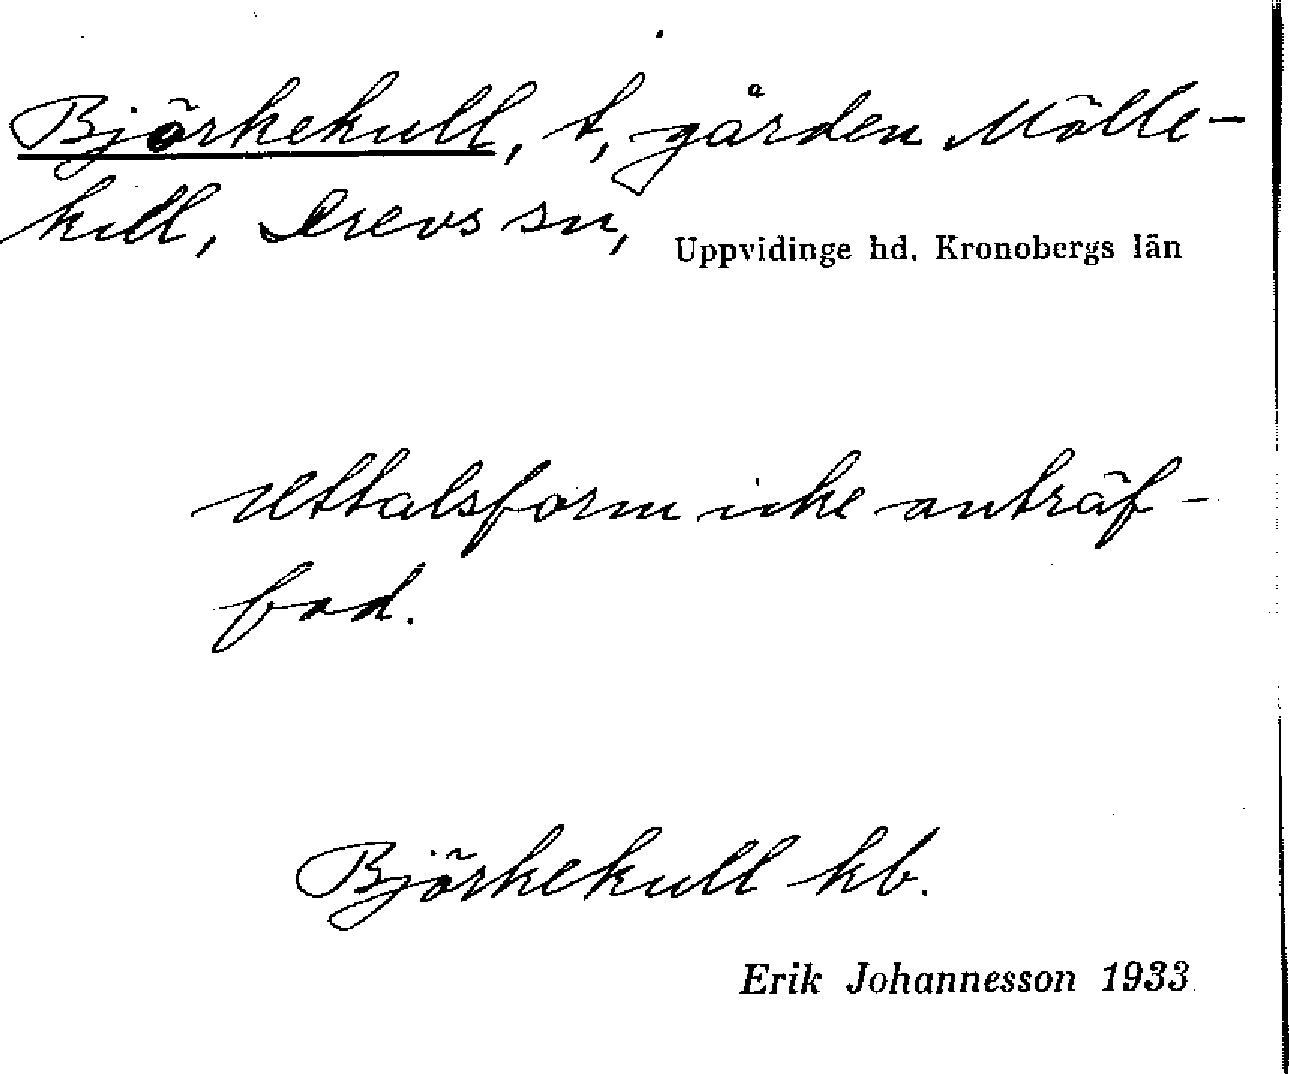 Björkekull, t, gården Mölle-
kull, Drevs sn,
Uppvidinge hd. Kronobergs län
Uttalsform icke anträf-
fad.
Björkekull kb.
Erik Johannesson 1933